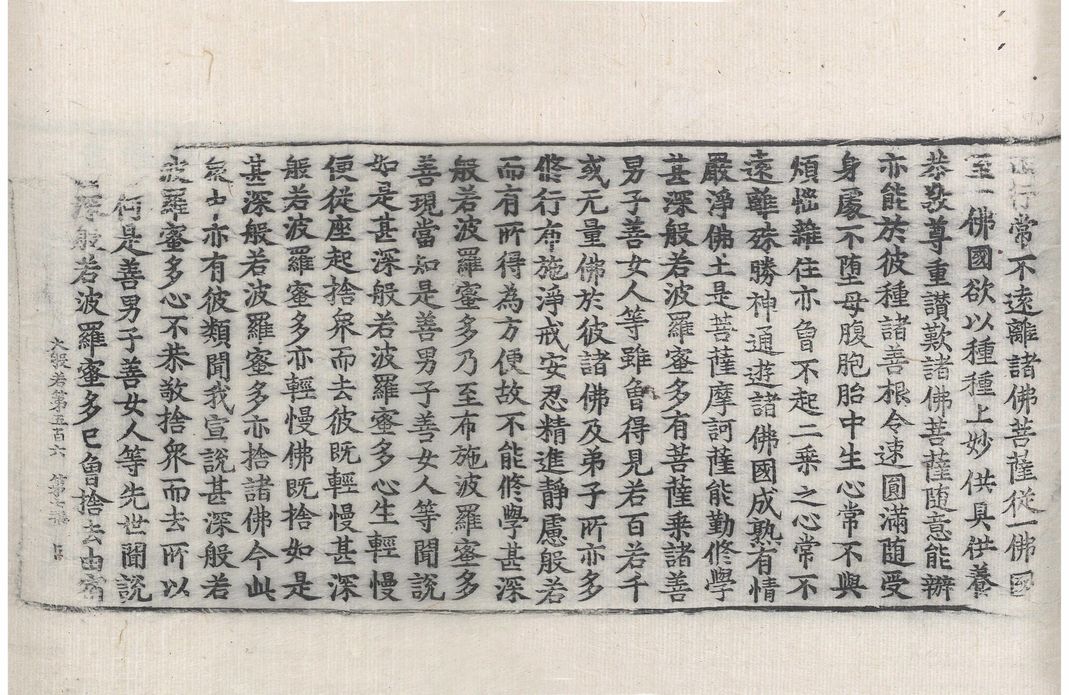 行常不遠離諸佛菩薩從一佛國
至一佛國欲以種種上妙供具供養
恭敬尊重讃歎諸佛菩薩随意能辦
亦能於彼種諸善根令速圓滿随受
身處不堕母腹胞胎中生心常不與
煩惱雜住亦曾不起二乘之心常不
遠離殊勝神通遊諸佛國成熟有情
嚴淨佛土是菩薩摩訶薩能勤修學
甚深般若波羅蜜多有菩薩乘諸善
男子善女人等雖曾得見若百若千
或无量佛於彼諸佛及弟子所亦多
修行布施淨戒安忍精進静慮般若
而有所得為方便故不能修學甚深
般若波羅蜜多乃至布施波羅蜜多
善現當知是善男子善女人等聞說
如是甚深般若波羅蜜多心生輕慢
便從座起捨衆而去彼既輕慢甚深
般若波羅蜜多亦輕慢佛既捨如是
甚深般若波羅蜜多亦捨諸佛今此
衆中亦有彼類聞我宣說甚深般若
波羅蜜多心不恭敬捨衆而去所以
何是善男子善女人等先世聞說
深般若波羅蜜多已曾捨去由宿
大般若第五百六 第 張